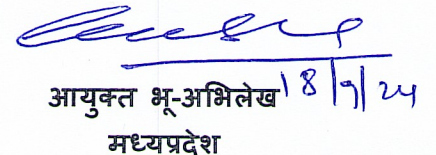 आयुक्त भू-अभिलेख 18/9/24
मध्यप्रदेश